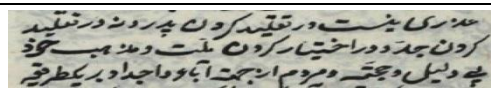 عذری نیست در تقلید کردن پدر و نه در تقلید
کردن جد و در اختیار کردن ملت و مذهب خود
بی دلیل و حجتی و مردم از جهة آباء و اجداد بر یکطریقه